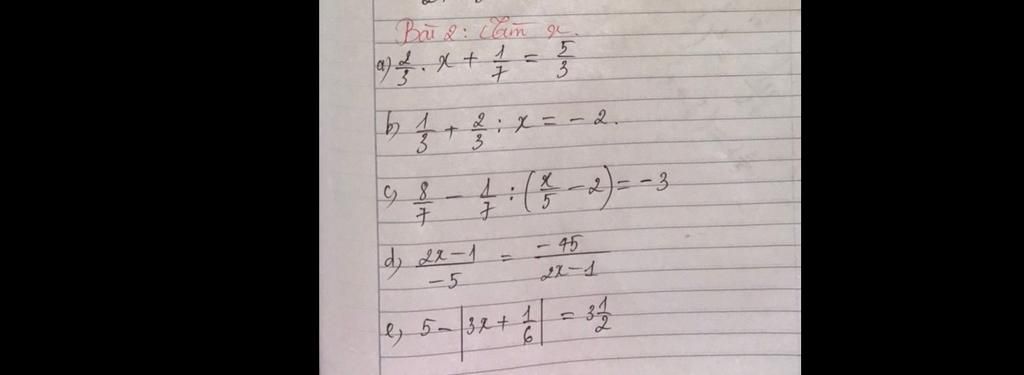 Bài 2: Tìm x.
a) 2/3 . x + 1/7 = 5/3
b, 1/3 + 2/3 : x = - 2.
c, 8/7 - 1/7 : (x/5 - 2) = -3
d, 2x-1/-5 = -45/2x-1
e, 5 - |3x + 1/6| = 3 1/2